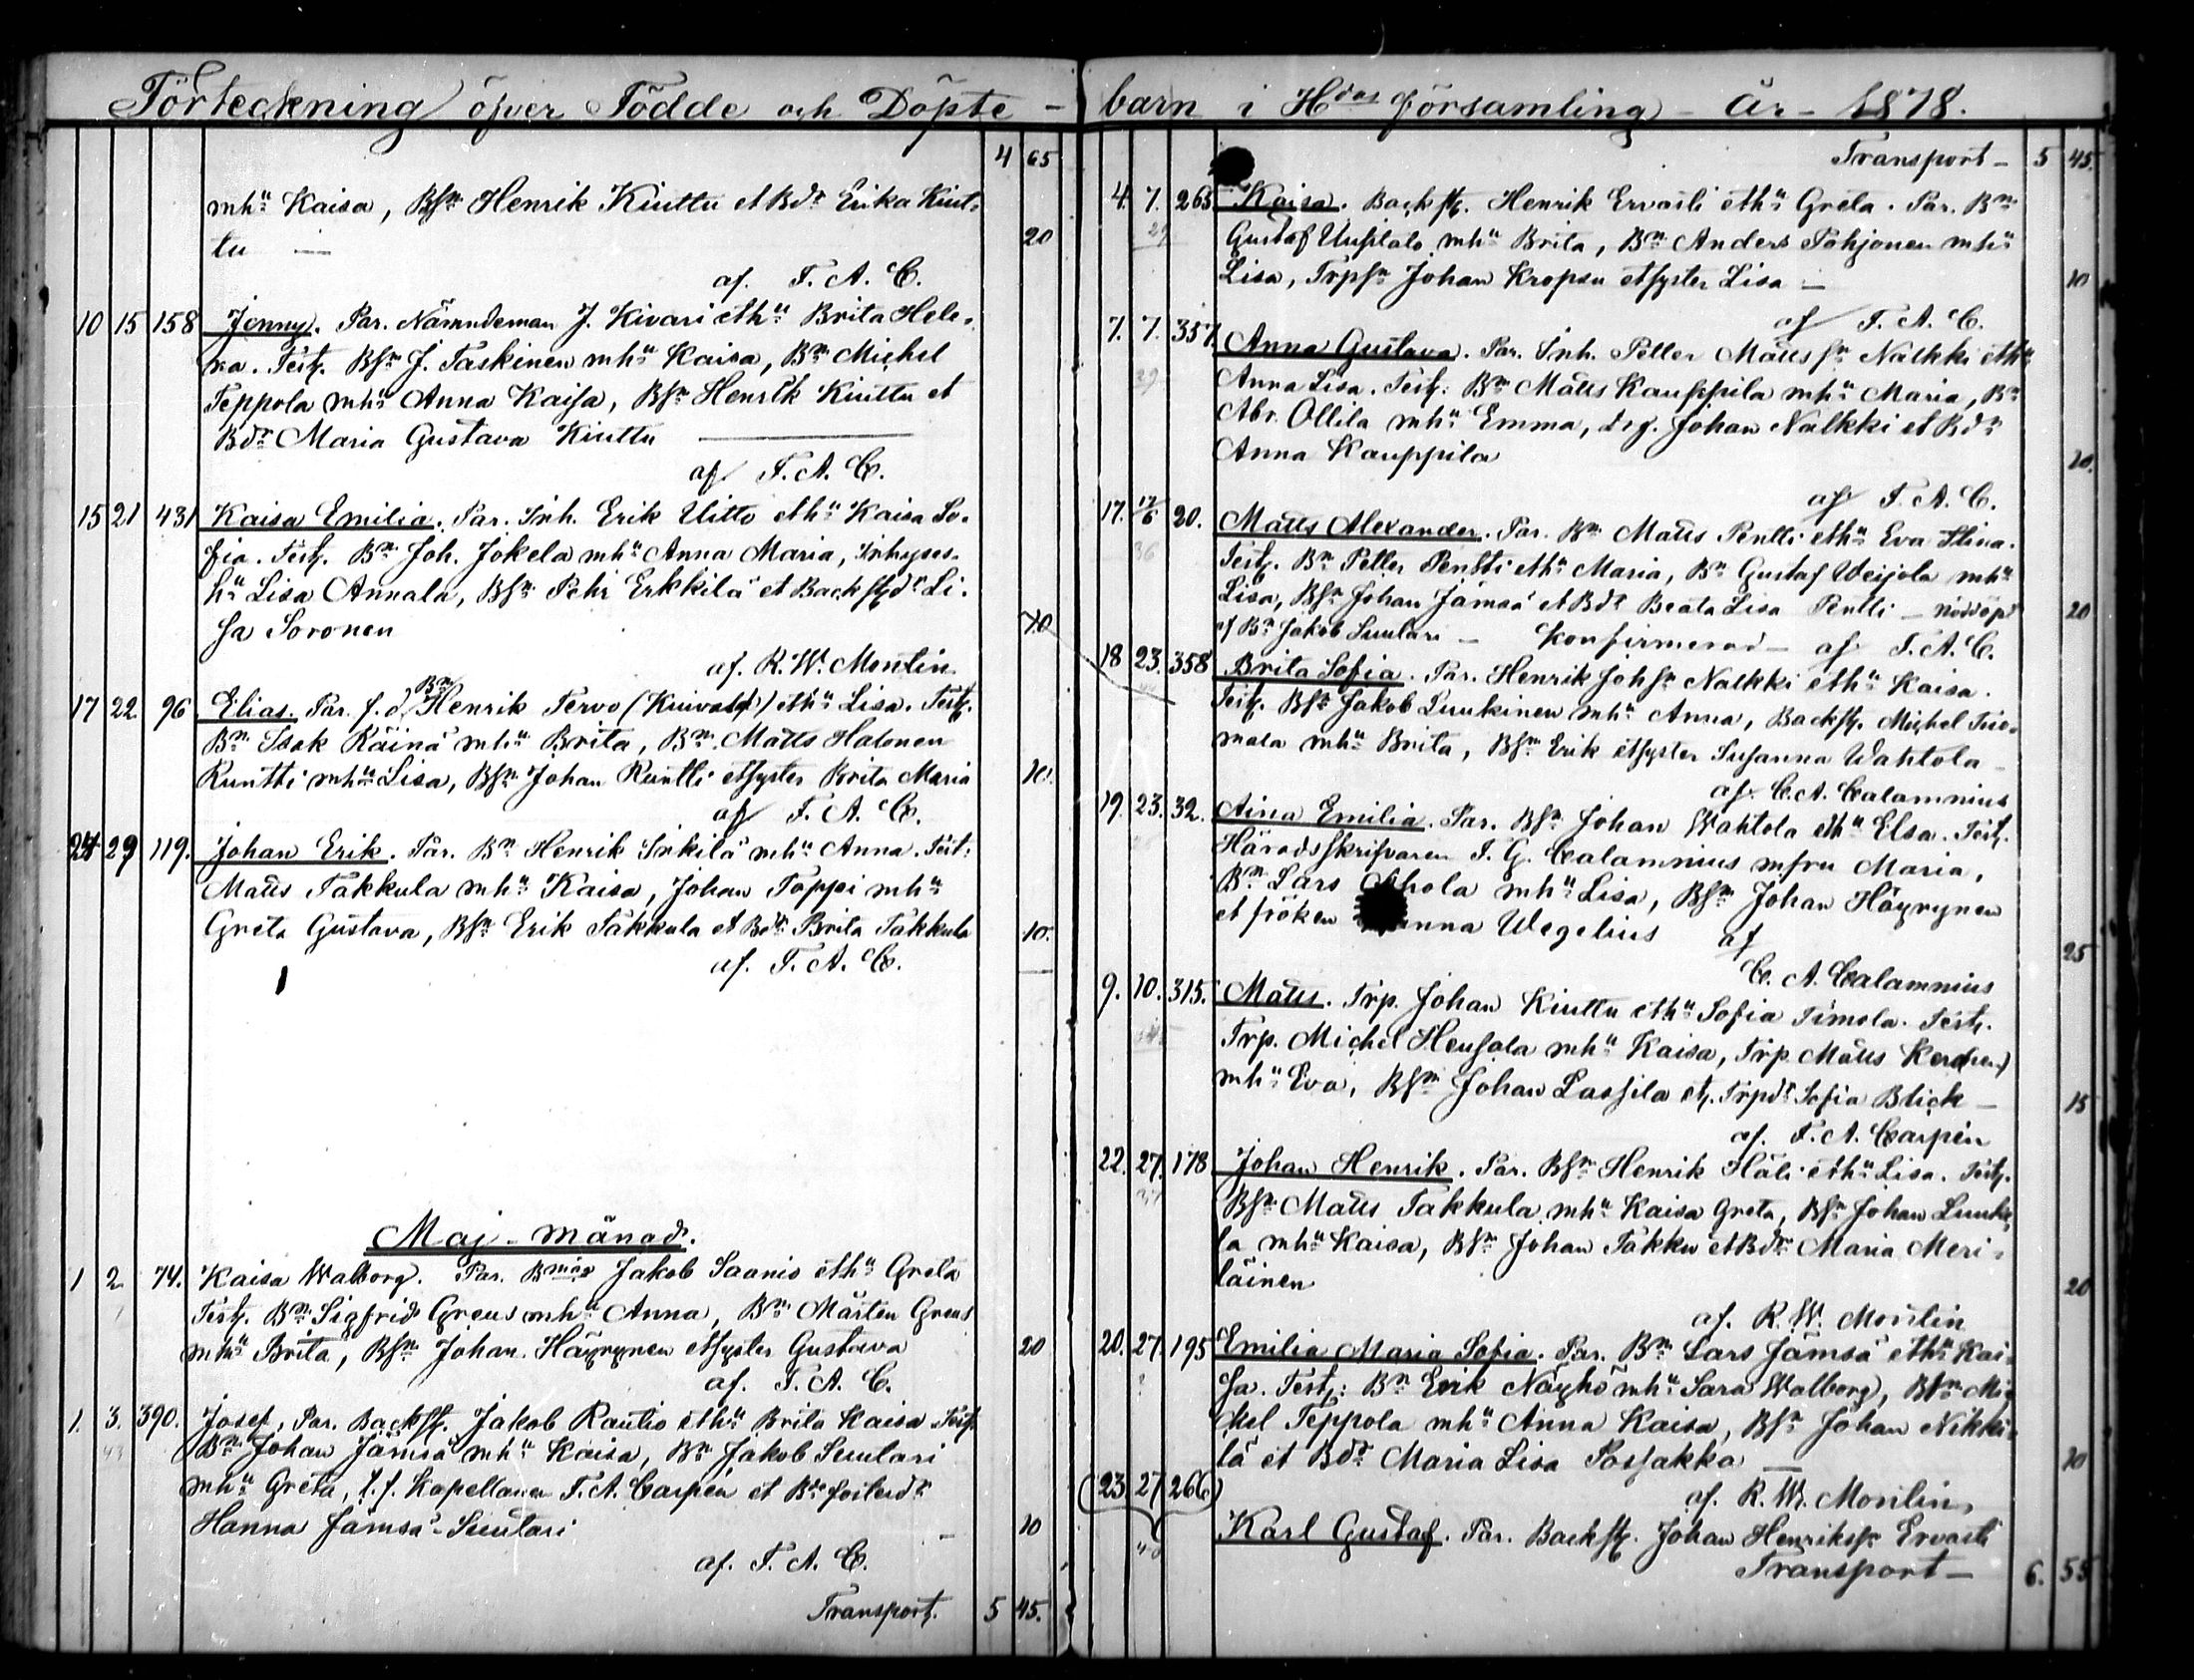 Förteckning öfver Födde och Döpte –
4 65
mhu Kaisa, Bsn Henrik Kiuttu et Bdr Erika Kiut-
tu — 20
af. F. A. C.
10 15 158 Jenny. Par. Nämndeman J. Kivari ethu Brita Hele-
na. Test. Bsn J. Taskinen mhu Kaisa, Bn Michel
Teppola mhu Anna Kaisa, Bsn Henrik Kiuttu et
Bdr Maria Gustava Kiuttu
af F. A. C.
15 21 431 Kaisa Emilia. Par. Inh. Erik Uitto ethu Kaisa So-
fia. Test. Bn Joh. Jokela mhu Anna Maria, Inhyses-
hu Lisa Annala, Bsn Pehr Erkkilä et Backstdr Li-
sa Soronen
af. R. W. Montin
17 22 96 Elias. Par. f. d. Bn Henrik Tervo ethu Lisa. Test.
Bn Isak Räinä mhu Brita, Bn Matts Halonen
Runtti mhu Lisa, Bsn Johan Runtti et syster Brita Maria 10.
af F. A. C.
29 119. Johan Erik. Par. Bn Henrik Inkilä mhu Anna. Test:
Matts Takkula mhu Kaisa, Johan Toppi mhu
Greta Gustava, Bsn Erik Takkula et Bdr Brita Takkula 10.
af. F. A. C.
Maj-månad.
1 2 74. Kaisa Walborg. Par. Bmåg Jakob Saanio ethu Greta
Test. Bn Sigfrid Greus mhu Anna, Bn Mårten Greus
mhu Brita, Bsn Johan Häyrynen et syster Gustava 20
af. F. A. C.
1. 3. 390. Josef, Par. Backst. Jakob Rautio ethu Brita Kaisa Test.
43 Bn Johan Jämsä mhu Kaisa, Bn Jakob Suutari
mhu Greta, t. f. Kapellanen F. A. Carpén et Bn fosterdr
Hanna Jämsä-Suutari – 10
af. F. A. C.
Transport. 5 45.
barn i Hdas församling – År – 1878.
Transport – 5 45.
4. 7. 265 Kaisa. Backst. Henrik Ervasti ethu Greta. Par. Bn
29 Gustaf Uusitalo mhu Brita, Bn Anders Pohjonen mhu
Lisa, Trpsn Johan Kropsu et syster Lisa — 10
af F. A. C.
7. 7. 357. Anna Gustava. Par. Inh. Petter Mattssn Nalkki ethu
29 Anna Lisa. Test: Bn Matts Kauppila mhu Maria, Bn
Abr. Ollila mhu Emma, drg. Johan Nalkki et Bdr
Anna Kauppila 20.
af F. A. C.
17. 17/6 20. Matts Alexander. Par. Bn Matts Pentti ethu Eva Stina.
36 Test. Bn Petter Pentti ethu Maria, Bn Gustaf Weijola mhu
Lisa, Bsn Johan Jämsä et Bdr Beata Lisa Pentti – nöddöpt 20
af Bn Jakob Suutari – Konfirmerad – af F. A. C.
18 23. 358 Brita Sofia. Par. Henrik Johsn Nalkki ethu Kaisa.
Test. Bsn Jakob Luukinen mhu Anna, Backst. Michel Tuo-
mala mhu Brita, Bsn Erik et syster Susanna Wahtola –
af. C. A. Calamnius
19. 23. 32. Aina Emilia. Par. Bsn Johan Wahtola ethu Elsa. Test.
Häradsskrifvaren J. G. Calamnius mfru Maria,
Bn Lars hola mhu Lisa, Bsn Johan Häyrynen
et fröken anna Wegelius af 25
C. A. Calamnius
9. 10. 315. Matts. Trp. Johan Kiuttu ethu Sofia Timola. Test.
Trp. Michel Heusala mhu Kaisa, Trp. Matts
mhu Eva, Bsn Johan Lassila et. Trpdr Sofia Blick – 15
af. F. A. Carpén
22. 27. 178 Johan Henrik. Par. Bsn Henrik Häli ethu Lisa. Test.
Bsn Matts Takkula mhu Kaisa Greta, Bsn Johan Luuki-
la mhu Kaisa, Bsn Johan Takku et Bdr Maria Meri-
läinen 20
af. R. W. Montin
20. 27. 195 Emilia Maria Sofia. Par. Bn Lars Jämsä ethu Kai-
sa. Test: Bn Erik Näyhö mhu Sara Walborg, Bn Mi-
chel Teppola mhu Anna Kaisa, Bsn Johan Nikki-
lä et Bdr Maria Lisa Posjakka — 20
(23 27 266) af. R. W. Montin
Karl Gustaf. Par. Backst. Johan Henrikssn Ervasti
Transport – 6. 55